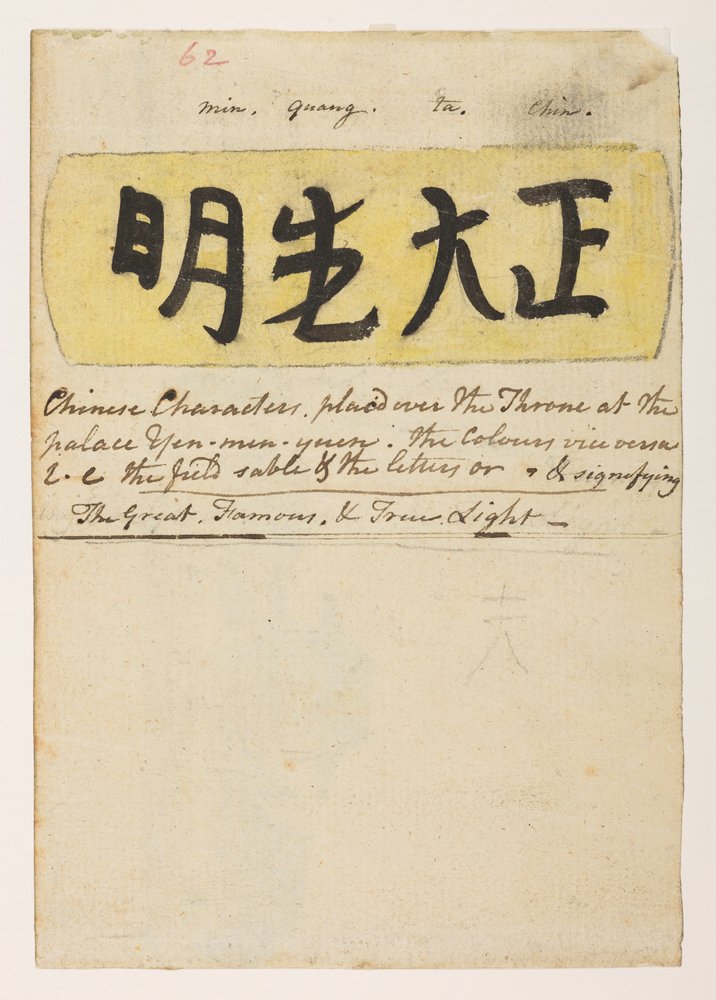 62
min. quang. ta. Chin.
明光大正
Chinese Characters, placed over the Throne at the
palace Yen-men-yuen. the Colours vice versa
i.e the field sable & the letters or, & signifying
The Great, Famous, & True Light —
大